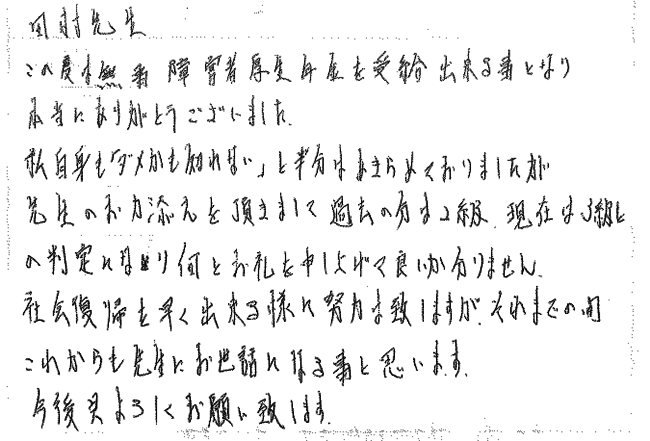 田村先生
この度は無事 障害者厚生年金を受給出来る事となり
本当にありがとうございました。
私自身も「ダメかも知れない」と半分はあきらめておりましたが
先生のお力添えを頂きまして過去の分は2級、現在は3級と
の判定になり何とお礼を申し上げて良いか分りません。
社会復帰を早く出来る様に努力は致しますが、それまでの間
これからも先生にお世話になる事と思います。
今後共よろしくお願い致します。